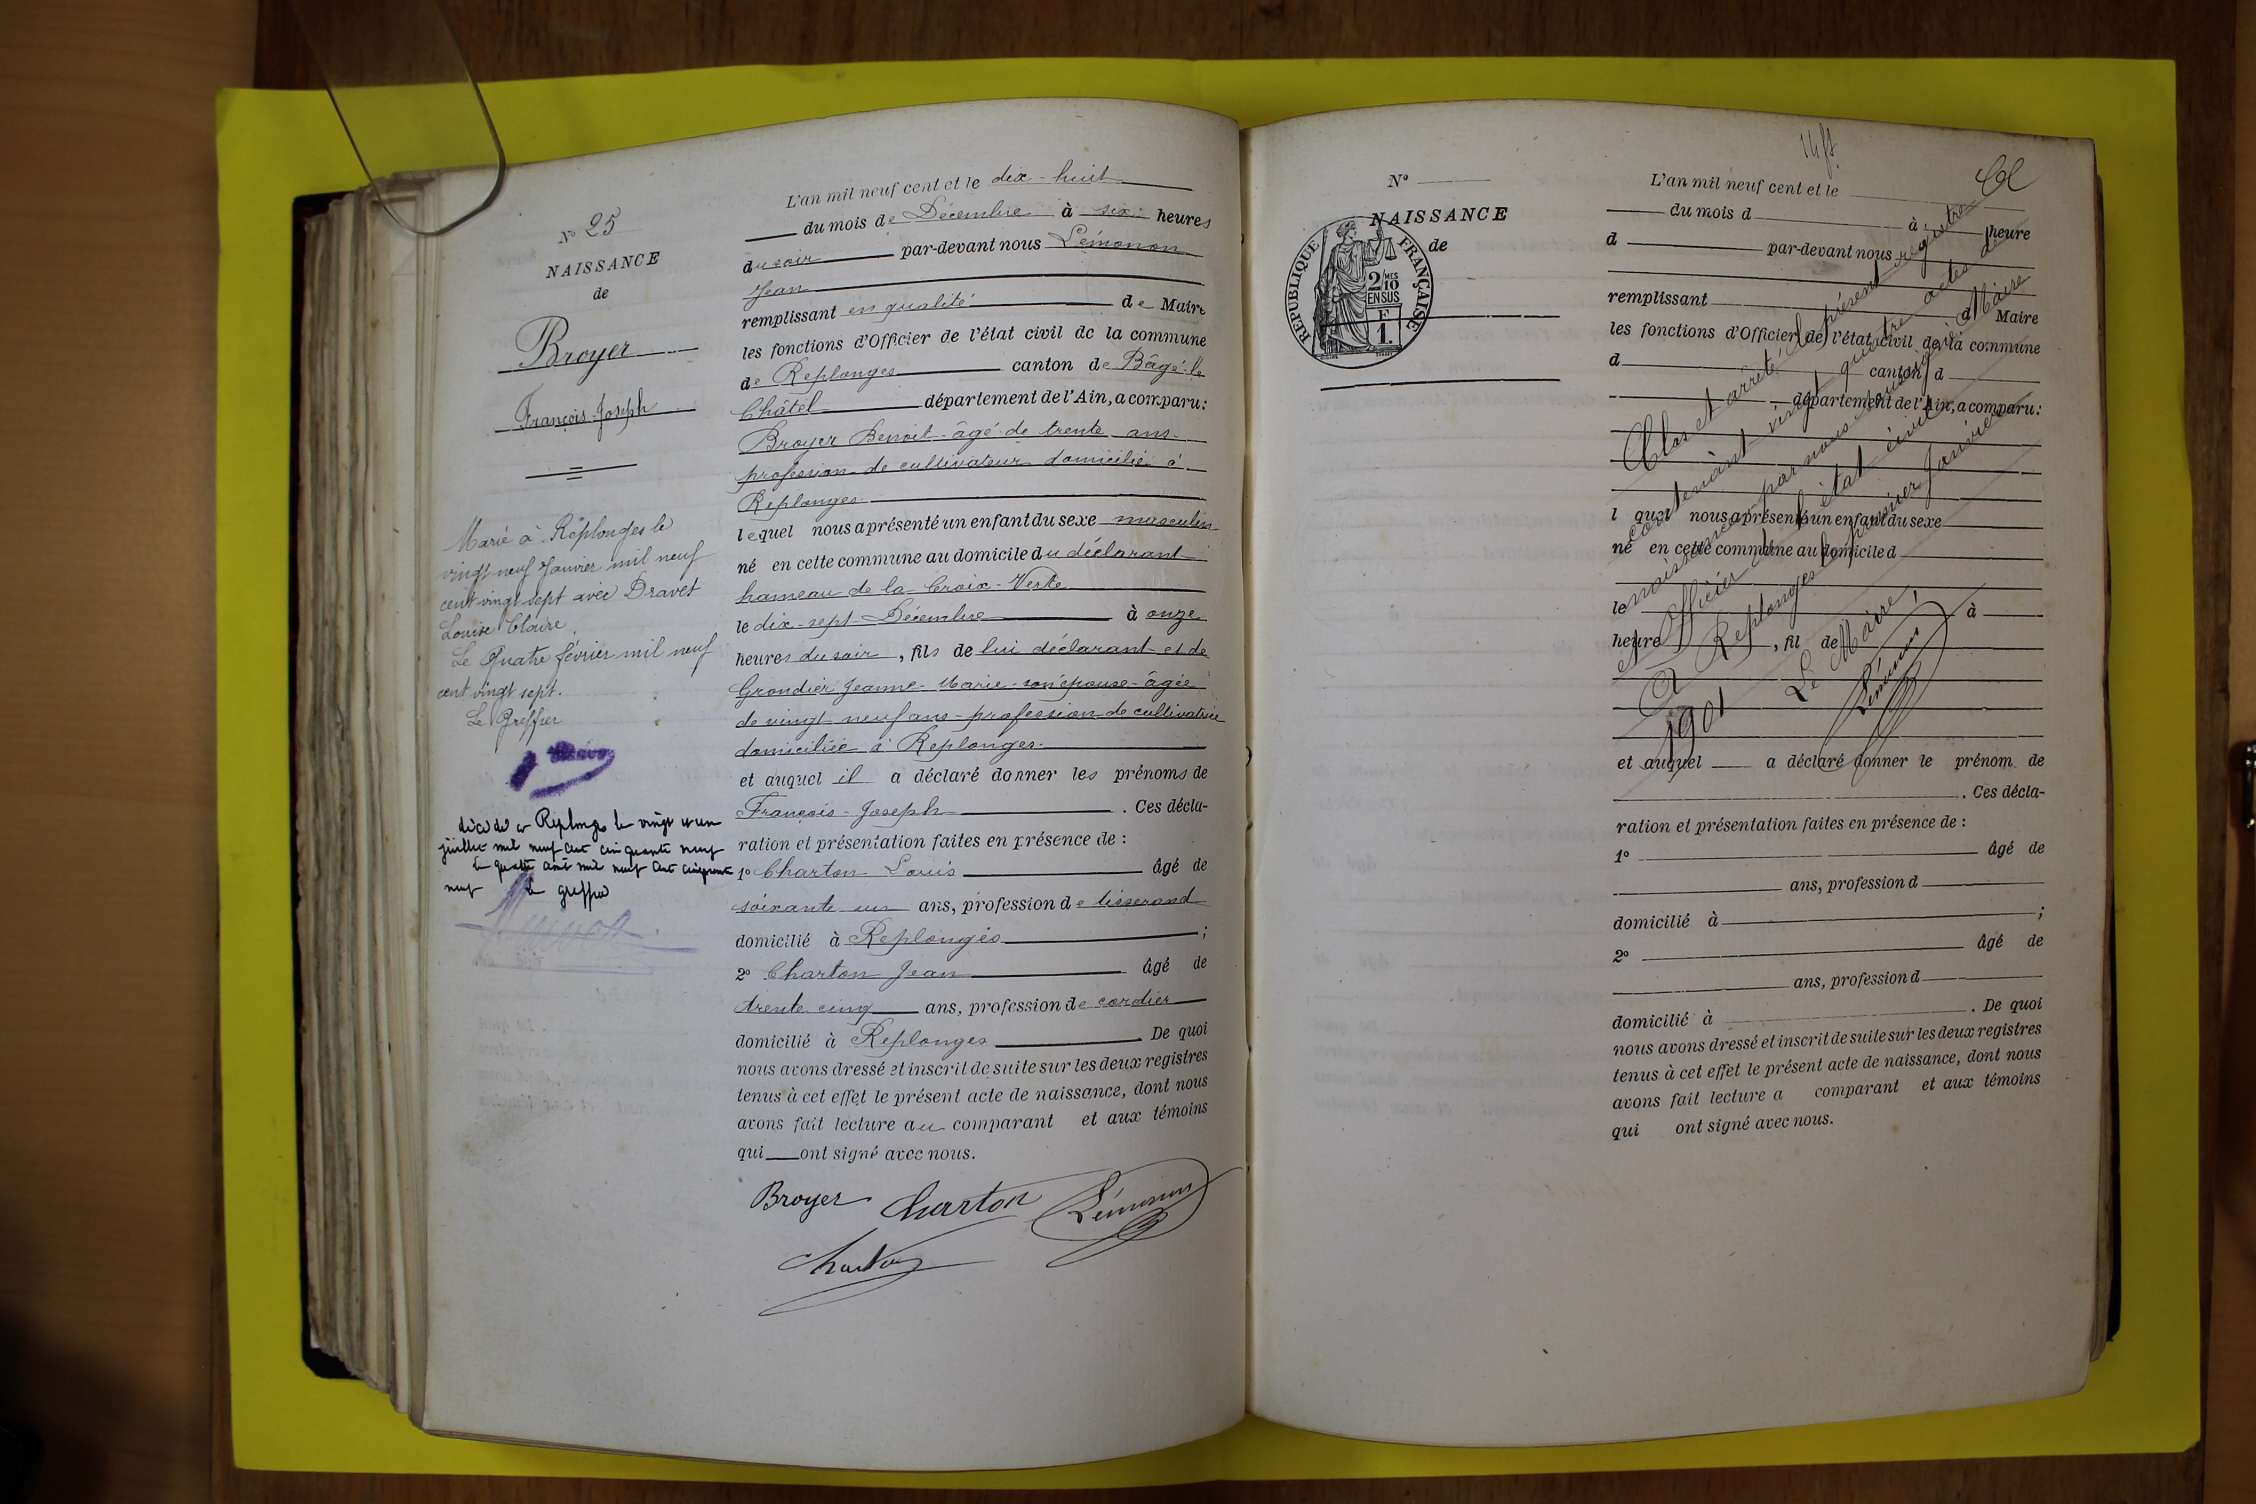 N° 25
NAISSANCE
de
Broyer
François-Joseph
Marié à Replonges le
vingt neuf Janvier mil neuf
cent vingt sept avec Dravet
Louise Claire
Le Quatre février mil neuf
cent vingt sept.
Le Greffier
décédé à Replonges le vingt et un
juillet mil neuf cent cinquante neuf
le quatre août mil neuf cent cinquante
neuf Le greffier
L'an mil neuf cent et le dix-huit
du mois de Décembre à six heures
du soir par-devant nous Lémonon
Jean
remplissant en qualité de Maire
les fonctions d'Officier de l'état civil de la commune
de Replonges canton de Bâgé-le
Châtel département de l'Ain, a comparu:
Broyer Benoit âgé de trente ans
profession de cultivateur domicilié à
Replonges
lequel nous a présenté un enfant du sexe masculin
né en cette commune au domicile du déclarant
hameau de la Croix-Verte
le dix-sept Décembre à onze
heures du soir, fils de lui déclarant et de
Grondier Jeanne-Marie son épouse âgée
de vingt-neuf ans profession de cultivatrice
domiciliée à Replonges.
et auquel il a déclaré donner les prénoms de
François-Joseph. Ces décla-
ration et présentation faites en présence de :
1° Charton Louis âgé de
soixante un ans, profession de tisserand
domicilié à Replonges ;
2° Charton Jean âgé de
trente cinq ans, profession de cordier
domicilié à Replonges. De quoi
nous avons dressé et inscrit de suite sur les deux registres
tenus à cet effet le présent acte de naissance, dont nous
avons fait lecture au comparant et aux témoins
qui ont signé avec nous.
Broyer Charton Lémonon
Charton
N°
NAISSANCE
de
REPUBLIQUE FRANÇAISE
2/10 MES
EN SUS
F
1.
L'an mil neuf cent et le
du mois d à heure
d par-devant nous
remplissant d Maire
les fonctions d'Officier de l'état civil de la commune
d canton d
département de l'Ain, a comparu:
l quel nous a présenté un enfant du sexe
né en cette commune au domicile d
le à
heure , fil de
et auquel a déclaré donner le prénom de
. Ces décla-
ration et présentation faites en présence de :
1° âgé de
ans, profession d
domicilié à ;
2° âgé de
ans, profession d
domicilié à . De quoi
nous avons dressé et inscrit de suite sur les deux registres
tenus à cet effet le présent acte de naissance, dont nous
avons fait lecture a comparant et aux témoins
qui ont signé avec nous.
Clos et arrêté le présent registre
contenant vingt quatre actes de
naissance par nous soussigné Maire
Officier de l'état civil
A Replonges le premier Janvier
1901
Le Maire,
Lémonon